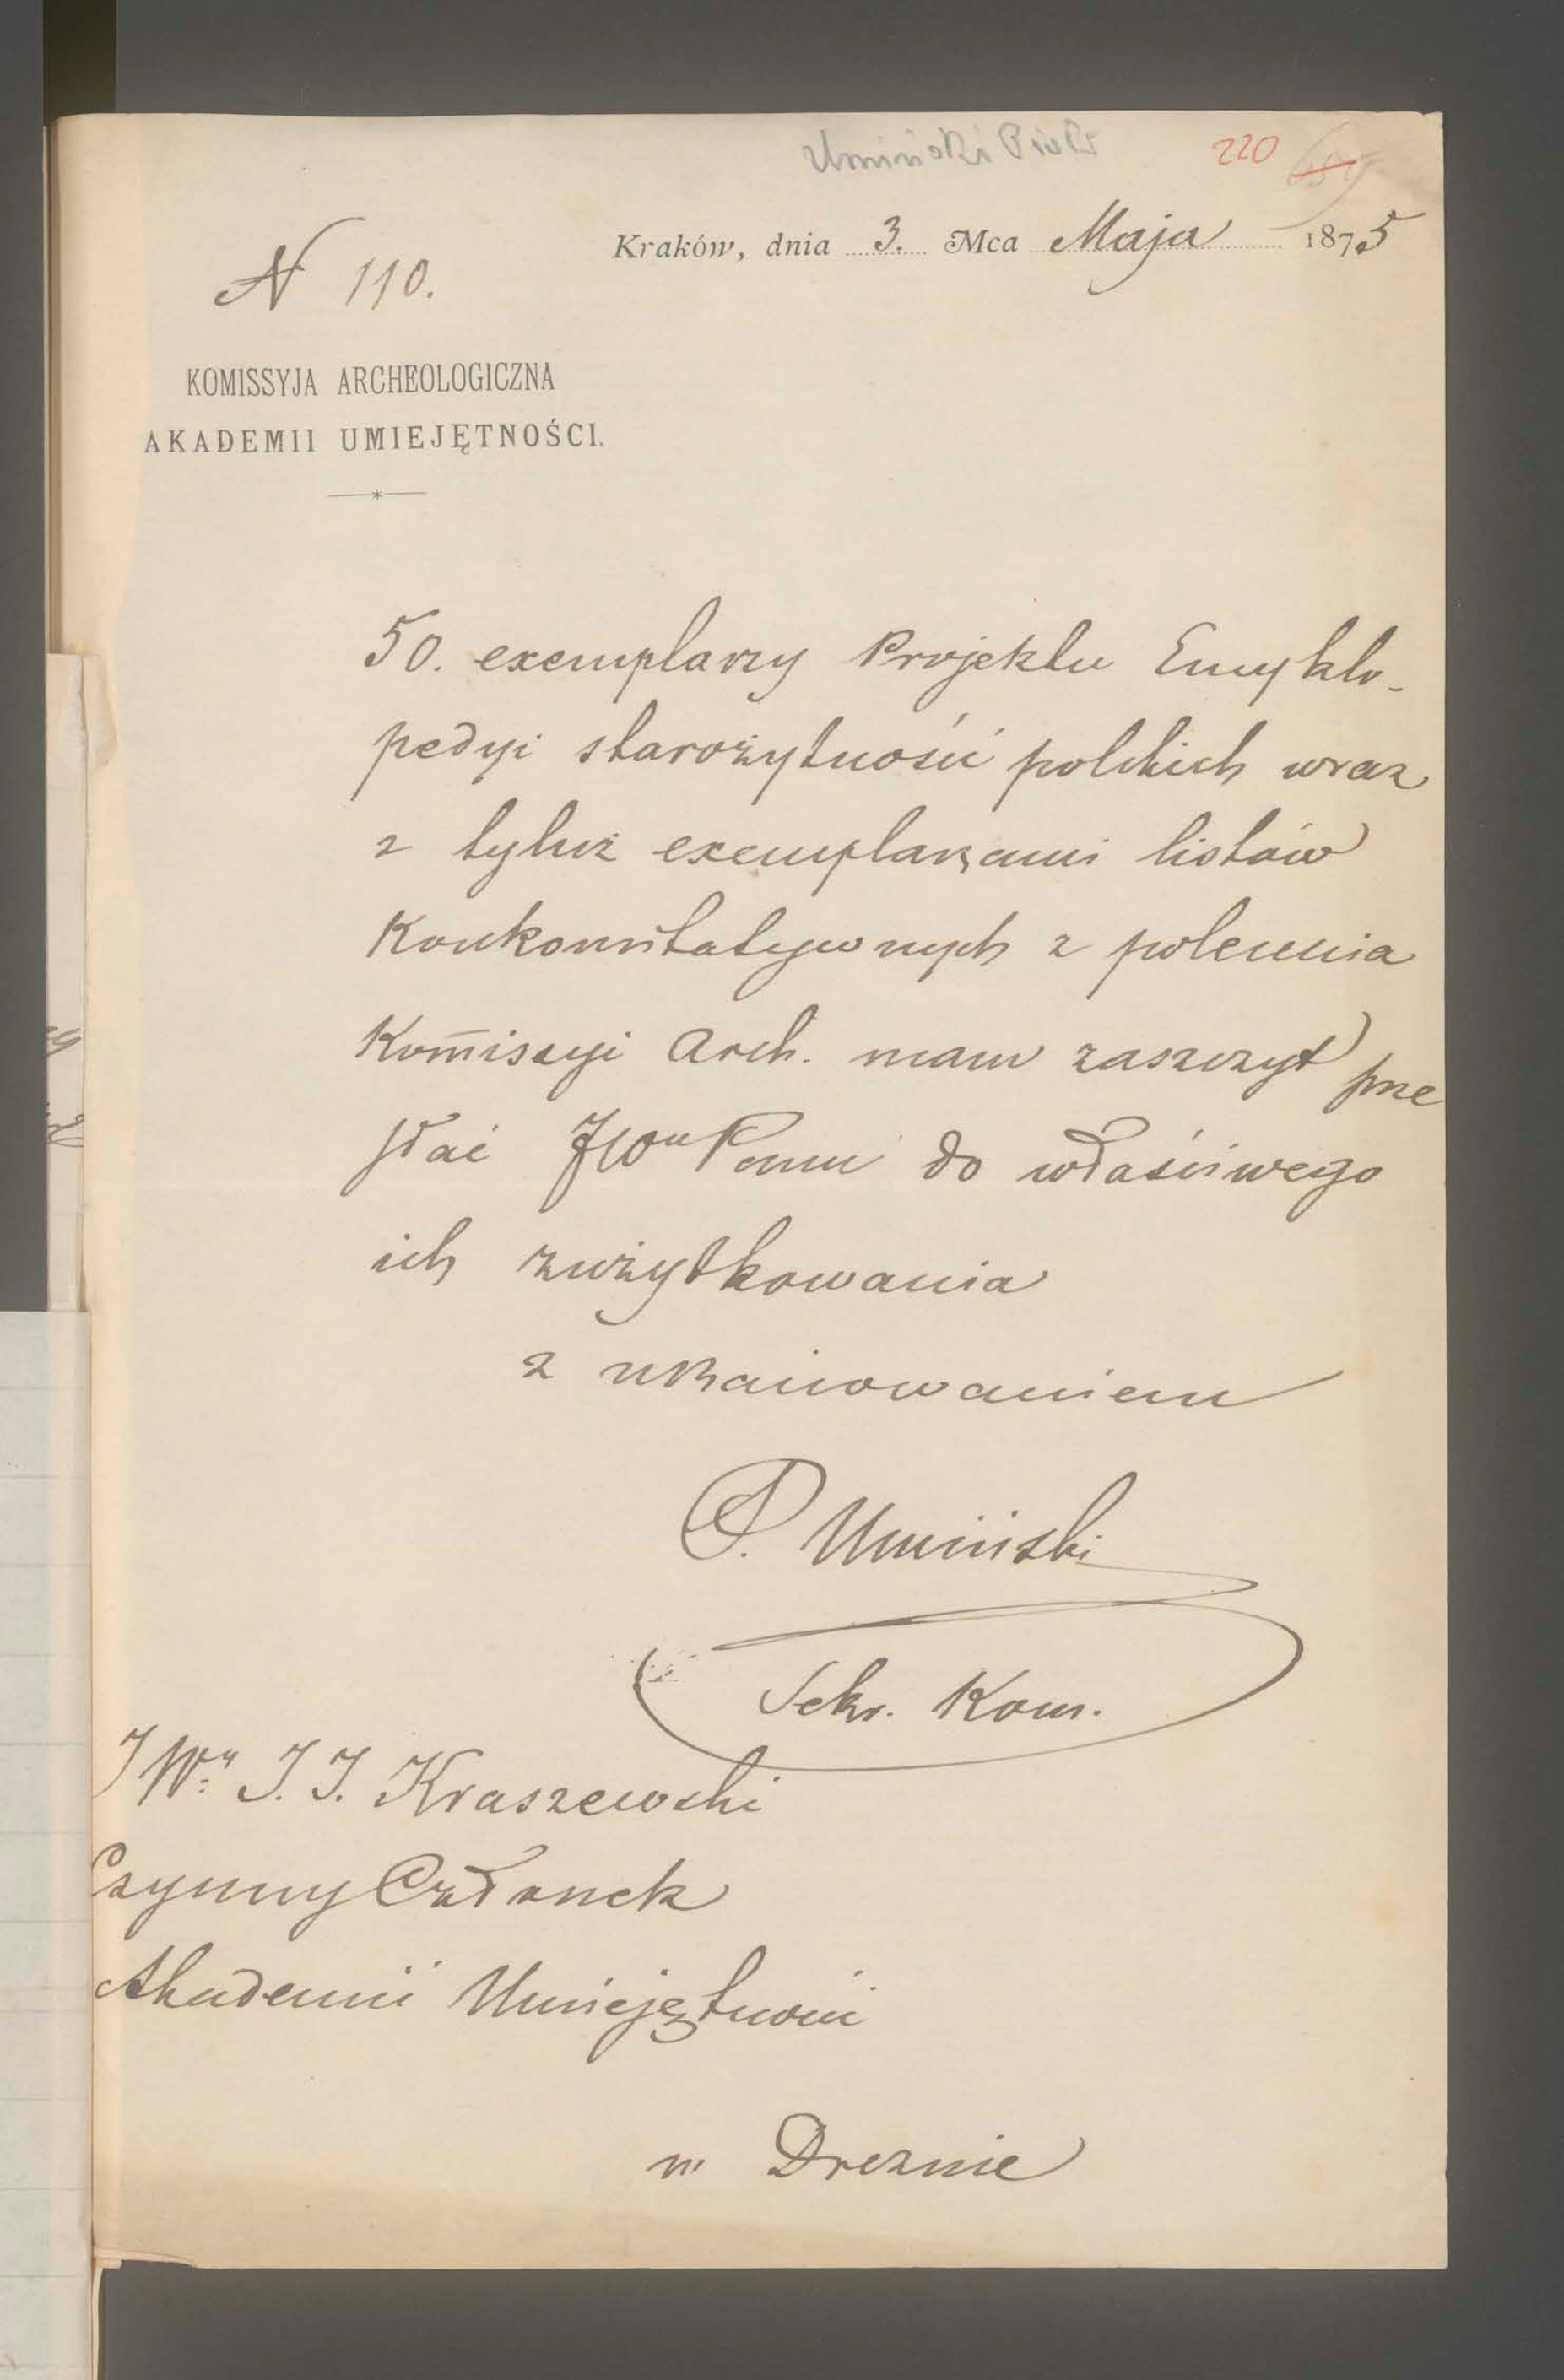 Umiński Piotr
220
Kraków, dnia 3. Mca Maja 1875
N 110.
KOMISSYJA ARCHEOLOGICZNA
AKADEMII UMIEJĘTNOŚCI.
50. exemplarzy Projektu Encyklo-
pedyi starożytności polskich wraz
z tyluż exemplarzami listów
Konkomitatywnych z polecenia
Kom̄issyi Arch. mam zaszczyt prze
słać JWmu Panu do właściwego
ich zużytkowania
z uszanowaniem
P. Umiński
Sekr. Kom.
JWy J. I. Kraszewski
Czynny Członek
Akademii Umiejętności
w Dreznie